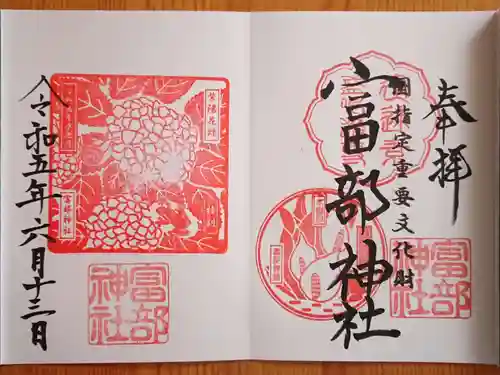 奉拝
国指定重要文化財
富部神社
富部神社
令和五年六月十三日
紫陽花詣
富部神社
富部神社